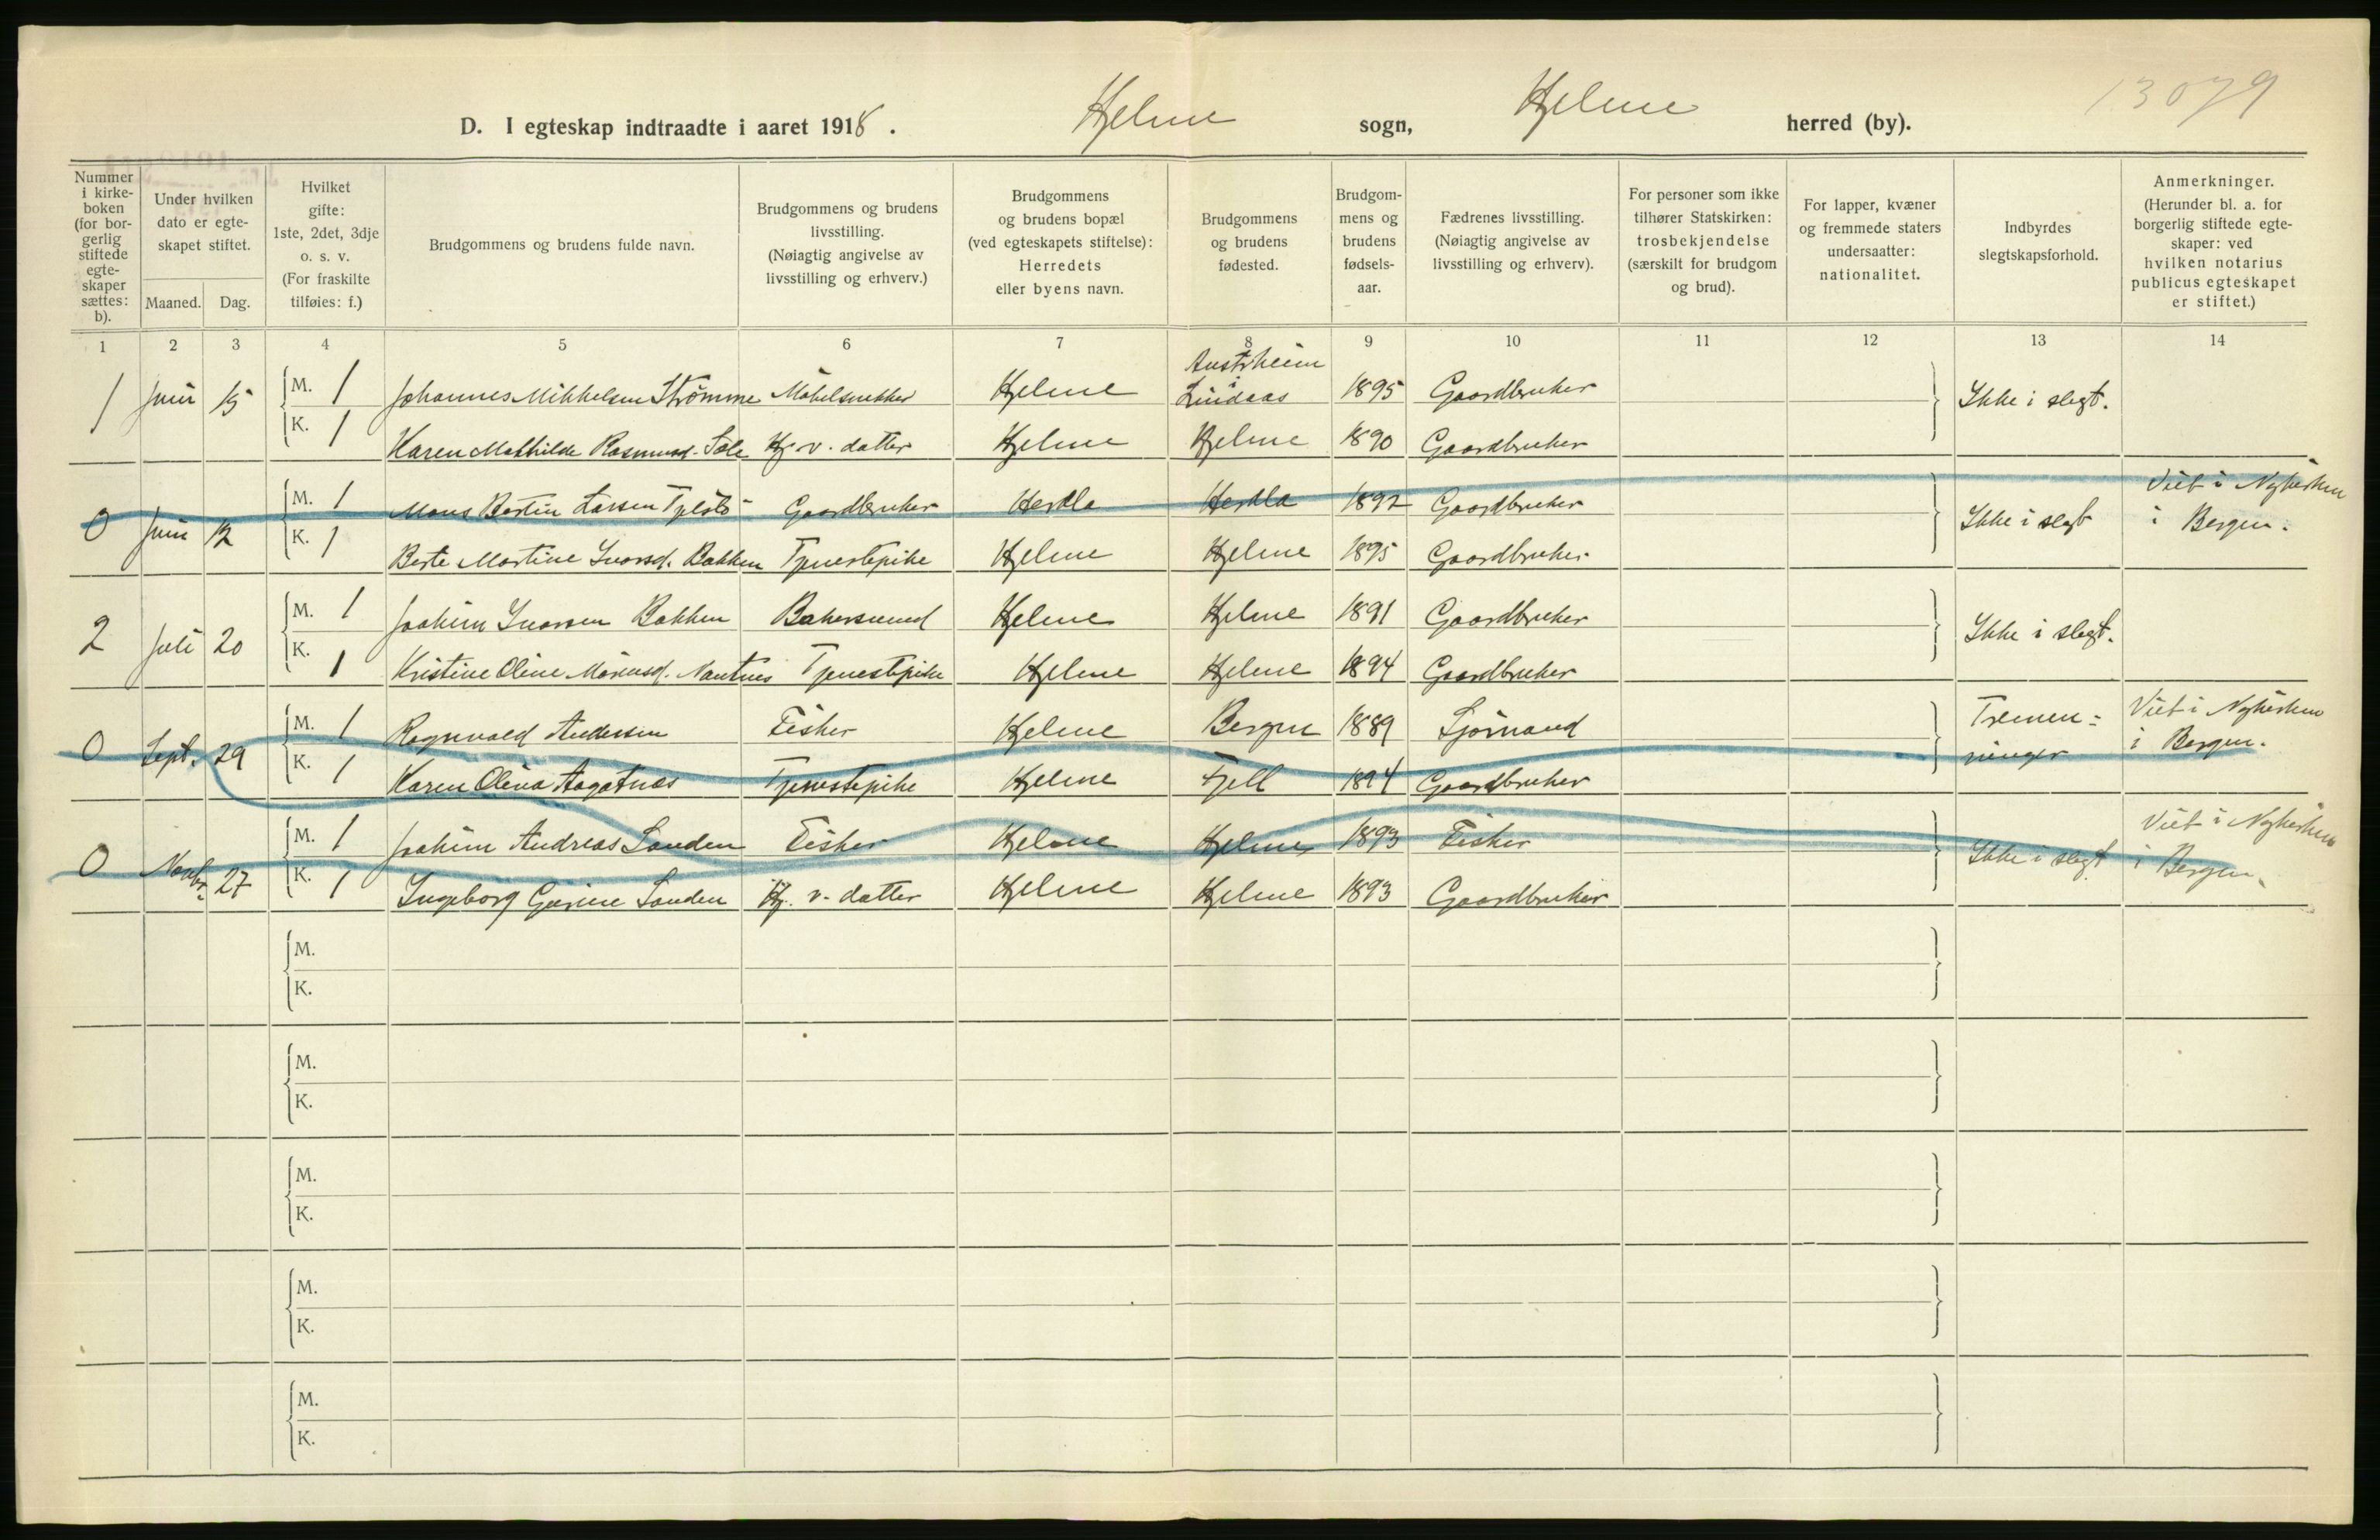 13079
D. I egteskap indtraadte i aaret 1918. Hjelme sogn, Hjelme herred (by).
Nummer i kirkeboken (for borgerlig stiftede egteskaper sættes: b).
Under hvilken dato er egteskapet stiftet.
Maaned. Dag.
Hvilket gifte: 1ste, 2det, 3dje o. s. v. (For fraskilte tilføies: f.)
Brudgommens og brudens fulde navn.
Brudgommens og brudens livsstilling. (Nøiagtig angivelse av livsstilling og erhverv.)
Brudgommens og brudens bopæl (ved egteskapets stiftelse): Herredets eller byens navn.
Brudgommens og brudens fødested.
Brudgommens og brudens fødselsaar.
Fædrenes livsstilling. (Nøiagtig angivelse av livsstilling og erhverv).
For personer som ikke tilhører Statskirken: trosbekjendelse (særskilt for brudgom og brud).
For lapper, kvæner og fremmede staters undersaatter: nationalitet.
Indbyrdes slegtskapsforhold.
Anmerkninger. (Herunder bl. a. for borgerlig stiftede egteskaper: ved hvilken notarius publicus egteskapet er stiftet.)
1 2 3 4 5 6 7 8 9 10 11 12 13 14
1 Juni 15 M. 1 Johannes Mikkelsen Strömme Möbelsnekker Hjelme Austrheim i Lindaas 1895 Gaardbruker Ikke i slegt.
K. 1 Karen Mathilde Rasmusd. Hj. v. datter Hjelme Hjelme 1890 Gaardbruker
0 Juni 12 M. 1 Mons Bertin Larsen Gaardbruker Herdla Herdla 1892 Gaardbruker Ikke i slegt Viet i Nykirken i Bergen.
K. 1 Berte Martine Ivarsd. Bakken Tjenestepike Hjelme Hjelme 1895 Gaardbruker
2 Juli 20 M. 1 Joakim Ivarsen Bakken Bakersvend Hjelme Hjelme 1891 Gaardbruker Ikke i slegt.
K. 1 Kristine Oline Monsd. Nautnes Tjenestepike Hjelme Hjelme 1894 Gaardbruker
0 Sept. 29 M. 1 Ragnvald Andersen Fisker Hjelme Bergen 1889 Sjömand Tremenninger Viet i Nykirken i Bergen.
K. 1 Karen Olina Aagatnes Tjenestepike Hjelme Fjell 1894 Gaardbruker
0 Novbr. 27 M. 1 Joakim Andreas Sanden Fisker Hjelme Hjelme 1893 Fisker Ikke i slegt Viet i Nykirken i Bergen.
K. 1 Ingeborg Gurine Sanden Hj. v. datter Hjelme Hjelme 1893 Gaardbruker
M.
K.
M.
K.
M.
K.
M.
K.
M.
K.